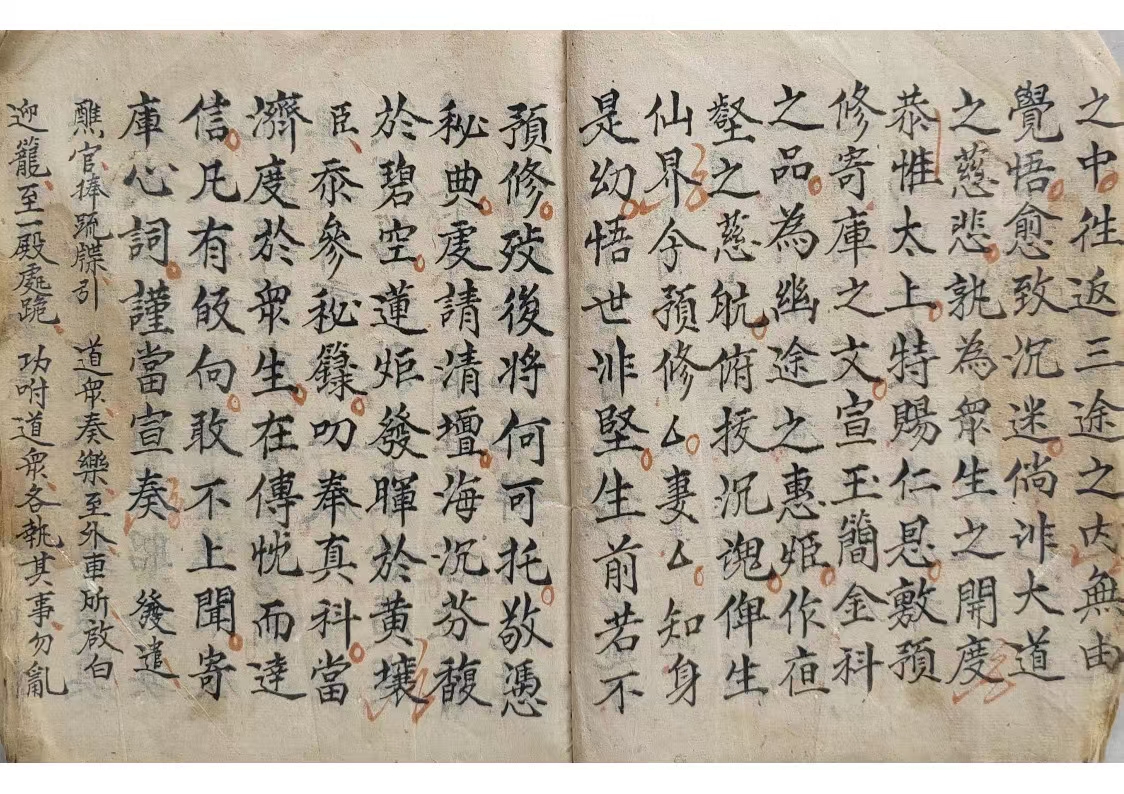 之中徃返三途之内無由
覺悟愈致沉迷倘非大道
之慈悲孰為衆生之開度
恭惟太上特賜仁恩敷預
修寄庫之文宣玉簡金科
之品為幽途之惠姬作亱
壑之慈航俯拔沉魂俾生
仙界今預修厶妻厶知身
是幻悟世非堅生前若不
預修殁後將何可托敬憑
秘典虔請清壇海沉芬馥
於碧空蓮炬發暉於黄壤
臣忝參秘籙叨奉真科當
濟度於衆生在傳忱而達
信凡有皈向敢不上聞寄
庫心詞謹當宣奏 發遣
醮官捧疏牒引 道衆奏樂至外車所啟白
迎籠至一殿處跪 功咐道衆各執其事勿亂